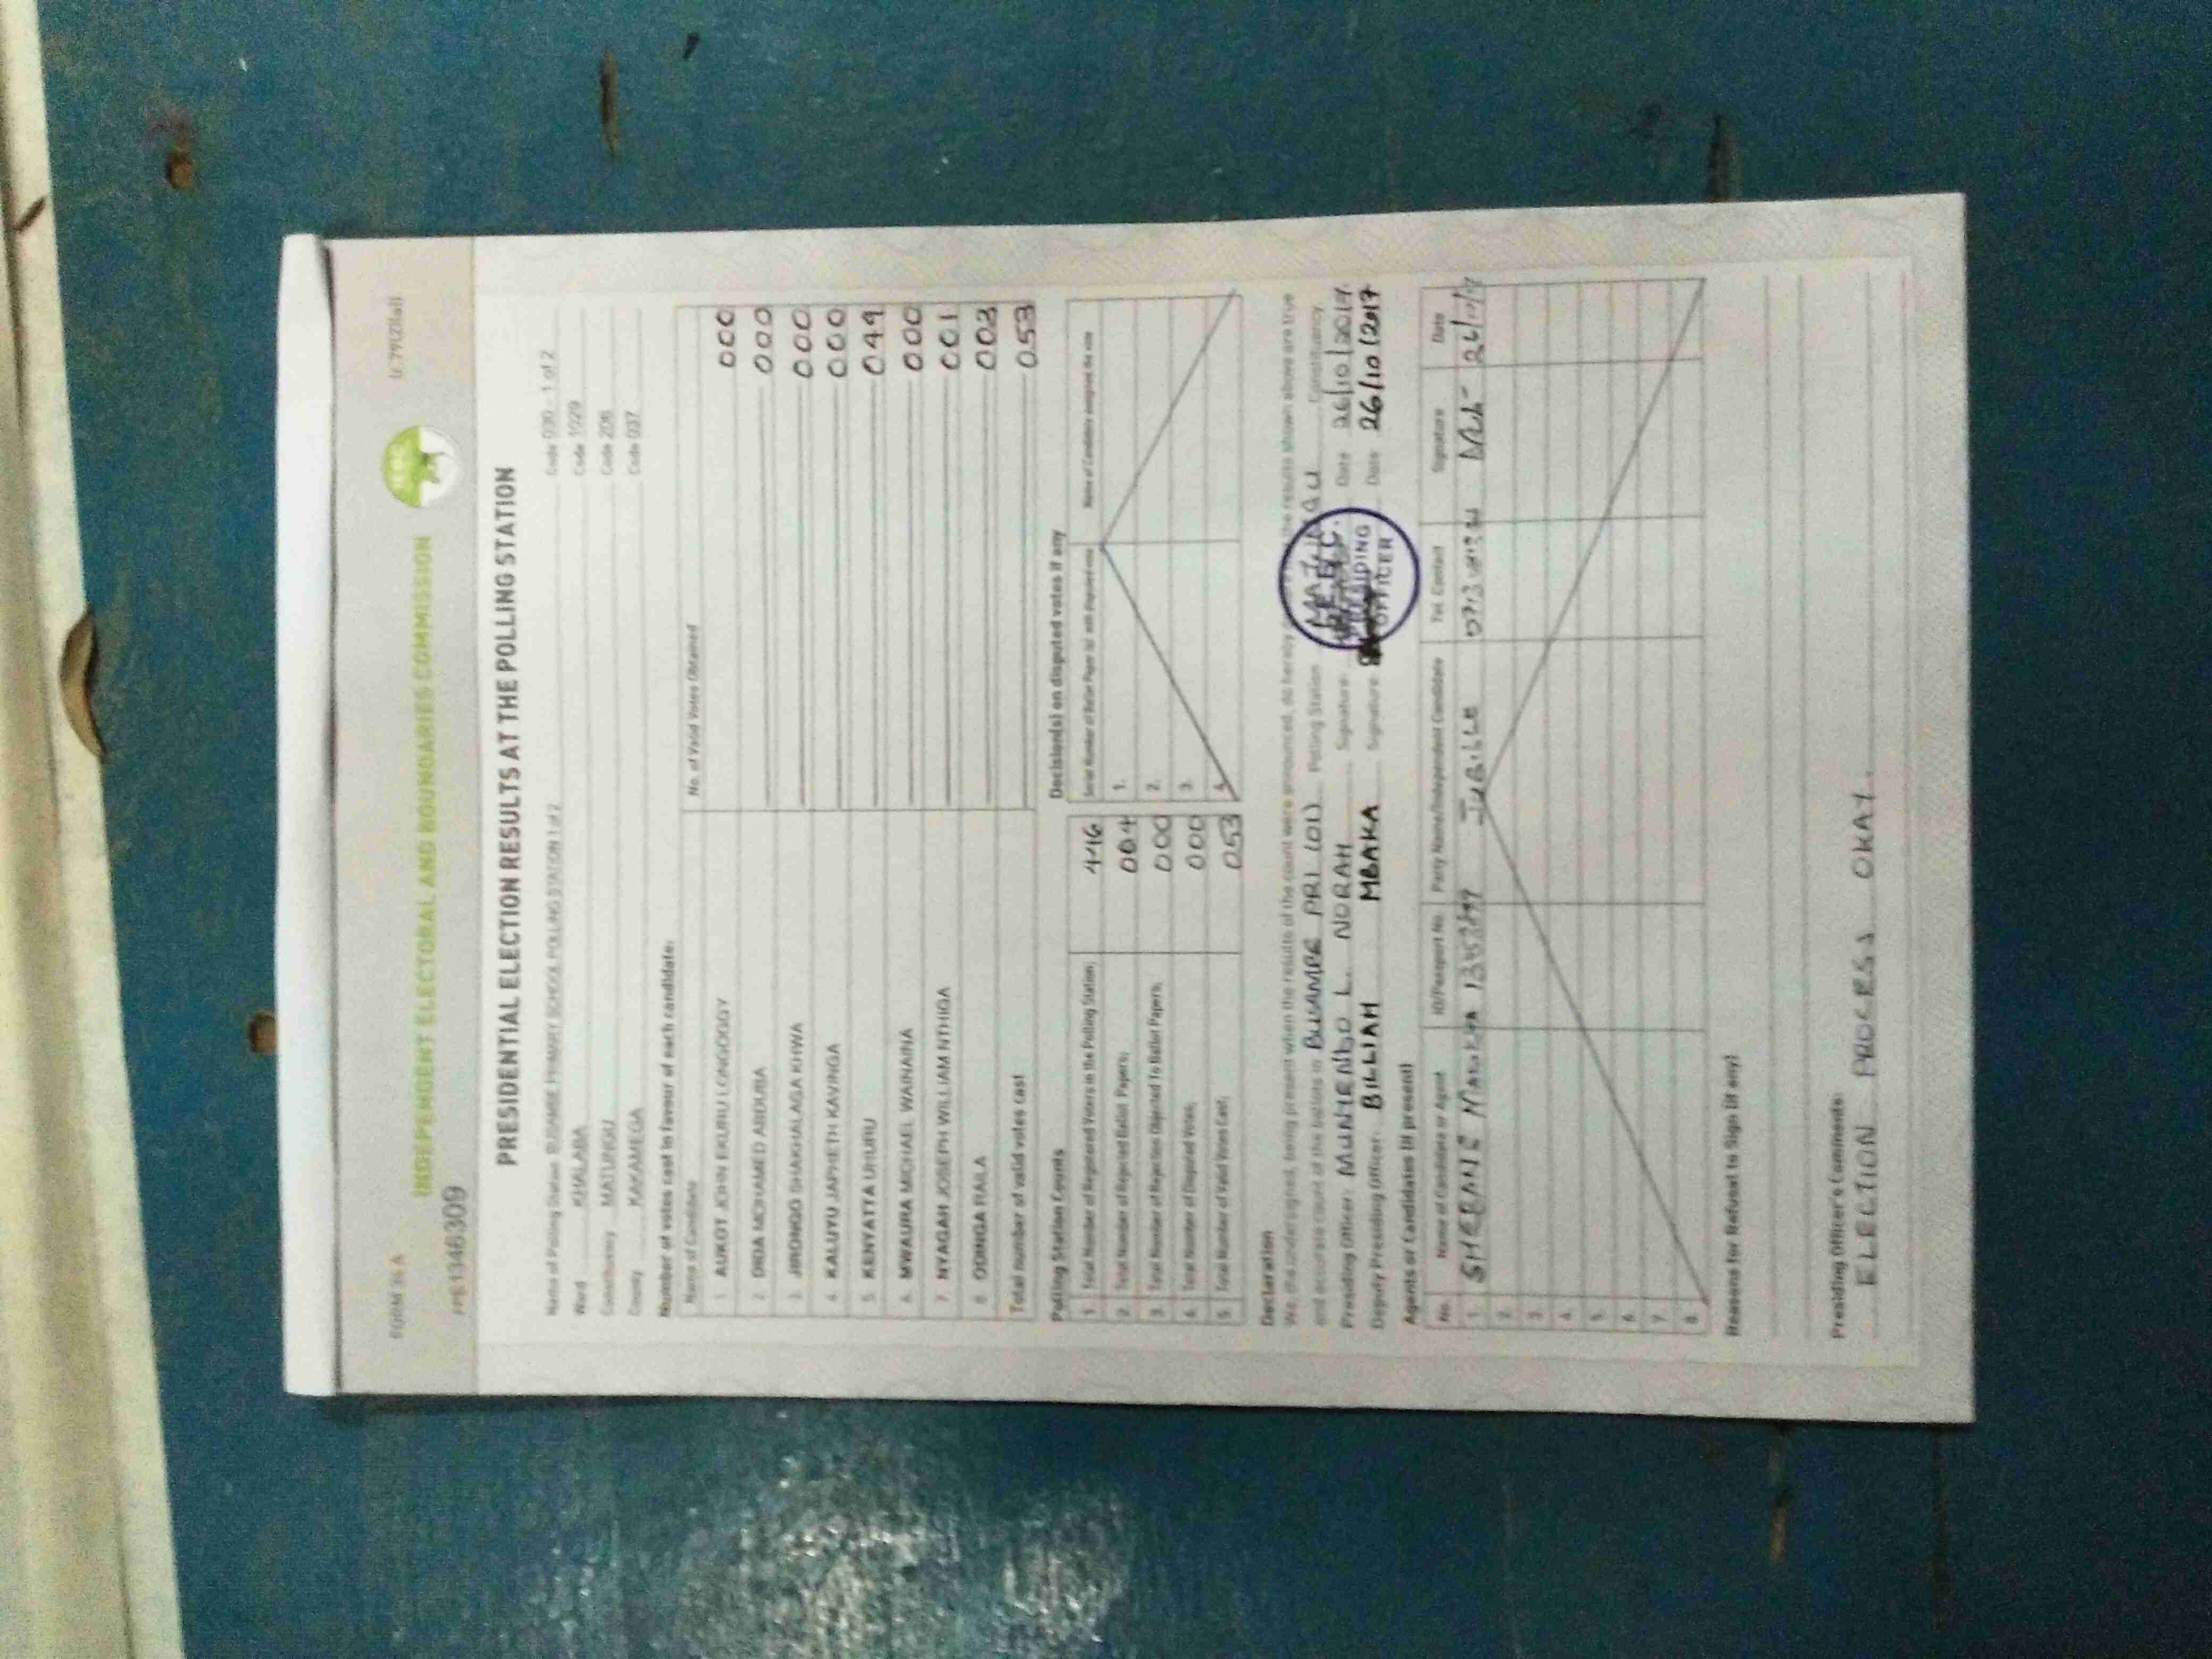 FORM 34 A
INDEPENDENT ELECTORAL AND BOUNDARIES COMMISSION
PRESIDENTIAL ELECTION RESULTS AT THE POLLING STATION
Name of Polling Station BUSAMBE PRIMARY SCHOOL POLLING STATION 1 of 2 Code 030 - 1 of 2
Ward KHALABA Code 1029
Constituency MATUNGU Code 208
County KAKAMEGA Code 037
Number of votes cast in favour of each candidate:
Name of Candidate No. of Valid Votes Obtained
1. AUKOT JOHN EKURU LONGOGGY 000
2. DIDA MOHAMED ABDUBA 000
3. JIRONGO SHAKHALAGA KHWA 000
4. KALUYU JAPHETH KAVINGA 000
5. KENYATTA UHURU 049
6. MWAURA MICHAEL WAINAINA 000
7. NYAGAH JOSEPH WILLIAM NTHIGA 001
8. ODINGA RAILA 003
Total number of valid votes cast 053
Polling Station Counts
1. Total Number of Registered Voters in the Polling Station 446
2. Total Number of Rejected Ballot Papers; 004
3. Total Number of Rejection Objected To Ballot Papers; 000
4. Total Number of Disputed Votes; 000
5. Total Number of Valid Votes Cast; 053
Decision(s) on disputed votes if any
Serial Number of Ballot Paper (s) with disputed votes Name of Candidate assigned the vote
1.
2.
3.
4.
Declaration
We, the undersigned, being present when the results of the count were announced, do hereby the results shown above are true
and accurate count of the ballots in BUSAMBE PRI (01) Polling Station MATUNGU Constituency
Presiding Officer: L. NORAH Signature: Date 26/10/2017
Deputy Presiding Officer: BILLIAH MBAKA Signature Date 26/10/2017
PRESIDING
OFFICER
Agents or Candidates (if present)
No. Name of Candidate or Agent ID/Passport No. Party Name/Independent Candidate Tel. Contact Signature Date
1. JUBILEE 26/10/17
2.
3.
4.
5.
6.
7.
8.
Reasons for Refusal to Sign (if any)
Presiding Officer's Comments:
ELECTION PROCESS OKAY.